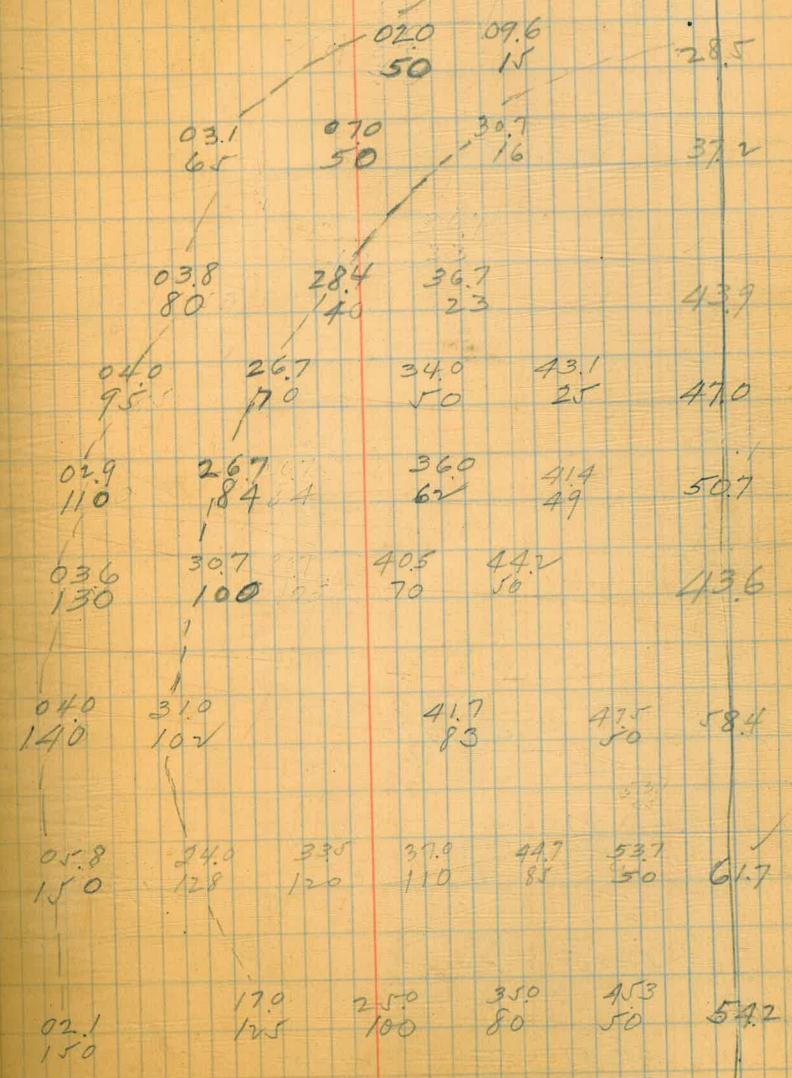 02.0 09.6 28.5
50 15
03.1 07.0 30.7 37.2
65 50 16
03.8 28.4 36.7 43.9
80 40 23
04.0 26.7 34.0 43.1 47.0
95 70 50 25
02.9 26.7 36.0 41.4 50.7
110 84 62 49
03.6 30.7 40.5 44.2 43.6
130 100 70 50
04.0 31.0 41.7 47.5 58.4
140 102 83 50
05.8 24.0 33.5 37.0 44.7 53.7 61.7
150 128 120 110 85 50
17.0 25.0 35.0 45.3 54.2
02.1 125 100 80 50
150